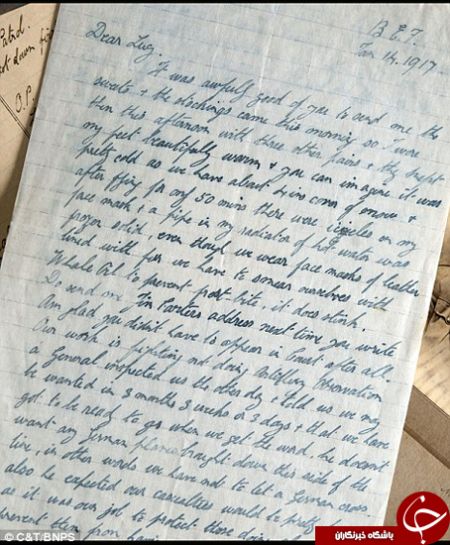 Patrol.
ot down
O.P.
B.E.F.
Jan 14. 1917
Dear Lug.
It was awfully good of you to send me the
sweets & the stockings came this morning so I wore
them this afternoon with three other pairs & they kept
my feet beautifully warm & you can imagine it was
pretty cold as we have about 4 ins of snow &
after flying for only 50 mins there were icicles on my
face mask, & a pipe in my radiator of hot water was
frozen solid, even though we wear face masks of leather
lined with fur we have to smear ourselves with
Whale Oil to prevent frost bite, it does stink.
Do send me Parkers address next time you write
Am glad you didn't have to appear in Court after all.
Our work is fighting not doing Artillery Observation
a General inspected us the other day & told us we may
be wanted in 3 months 3 weeks or 3 days & that we have
got to be ready to go when we get the word. he doesn't
want any German planes brought down this side of the
line, in other words we have not to let a German cross
also he expected our casualties would be pretty
as it was our job to protect those doing
prevent them from
© C&T/BNPS
باشگاه خبرنگاران